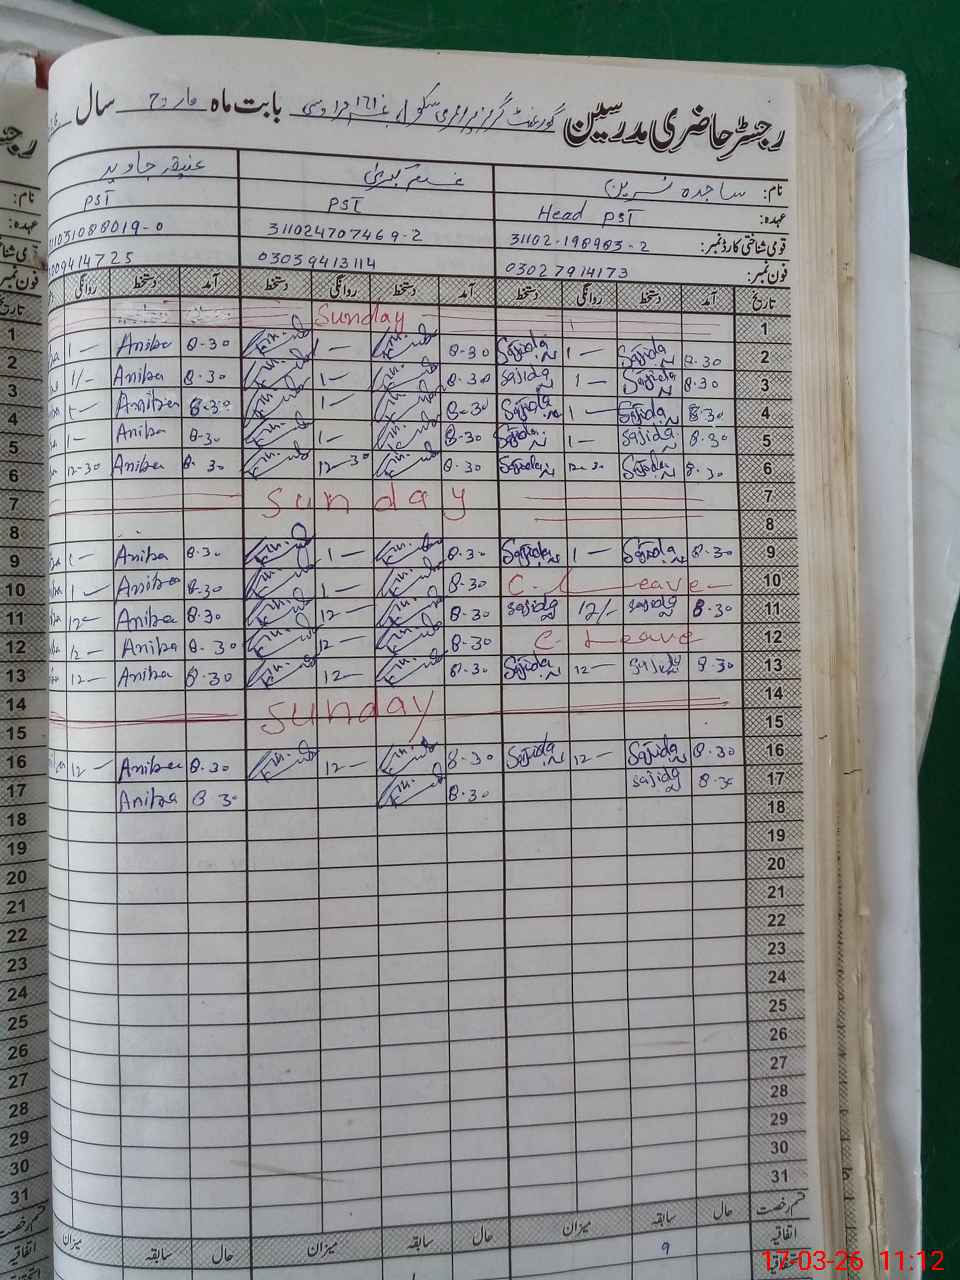 رجسٹر حاضری مدرسین گورنمنٹ گرلز پرائمری سکول بابت ماہ مارچ سال
نام: ساجدہ نسرین
عہدہ: Head PST PST PST
قومی شناختی کارڈ نمبر: 31102-198983-2 311024707469-2 11031088019-0
فون نمبر: 03027914173 03039413114 009414725
تاریخ آمد دستخط روانگی دستخط آمد دستخط روانگی دستخط آمد دستخط روانگی
1 Sunday
2 8-30 Sajida 1- Sajida 8-30 1- 8-30 Aniba 1-
3 8-30 Sajida 1- Sajida 8-30 1- 8-30 Aniba 1/-
4 8-30 Sajida 1- Sajida 8-30 1- 8-30 Aniba 1-
5 8-30 Sajida 1- Sajida 8-30 1- 8-30 Aniba 1-
6 8-30 Sajida 12-30 Sajida 8-30 12-30 8-30 Aniba 12-30
7 Sunday
8
9 8-30 Sajida 1- Sajida 8-30 1- 8-30 Aniba 1-
10 C-Leave 8-30 1- 8-30 Aniba 1-
11 8-30 Sajida 12/- Sajida 8-30 12- 8-30 Aniba 12-
12 C-Leave 8-30 12- 8-30 Aniba 12-
13 8-30 Sajida 12- Sajida 8-30 12- 8-30 Aniba 12-
14 Sunday
15
16 8-30 Sajida 12- Sajida 8-30 12- 8-30 Aniba 12-
17 8-30 Sajida 8-30 8-30 Aniba
18
19
20
21
22
23
24
25
26
27
28
29
30
31
قسم رخصت حال سابقہ میزان حال سابقہ میزان حال سابقہ میزان
اتفاقیہ 9
17-03-26 11:12